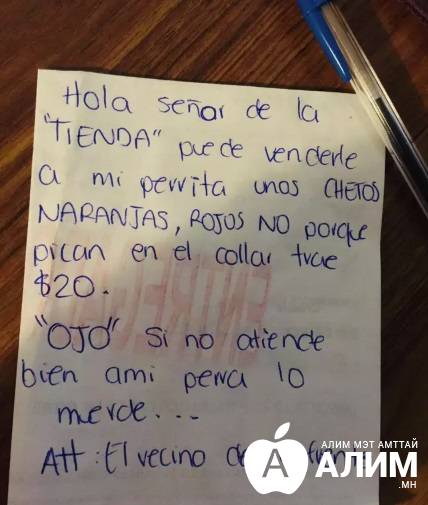 Hola señor de la
"TIENDA" puede venderle
a mi perrita unos CHETOS
NARANJAS, ROJOS NO porque
pican en el collar trae
$20.
"OJO" si no atiende
bien ami perra lo
merde...
Att: El vecino de
АЛИМ МЭТ АМТТАЙ
А
АЛИМ
.МН